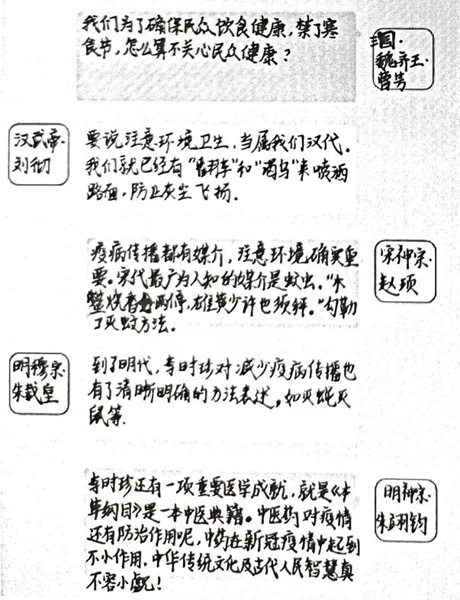 我们为了确保民众饮食健康，禁了寒
食节，怎么算不关心民众健康？
三国·
魏齐王·
曹芳
汉武帝·
刘彻
要说注意环境卫生，当属我们汉代。
我们就已经有“翻车”和“渴乌”来喷洒
路面，防止灰尘飞扬。
疫病传播都有媒介，注意环境确实重
要。宋代最广为人知的媒介是蚊虫。“木
鳖烧香分两停，雄黄少许也须秤。”勾勒
了灭蚊方法。
宋神宗·
赵顼
明穆宗·
朱载
到了明代，李时珍对减少疫病传播也
有了清晰明确的方法表述，如灭蝇灭
鼠等.
李时珍还有一项重要医学成就，就是《本
草纲目》是一本中医典籍。中医药对疫情
还有防治作用呢，中药在新冠疫情中起到
不小作用，中华传统文化及古代人民智慧真
不容小觑！
明神宗·
朱翊钧